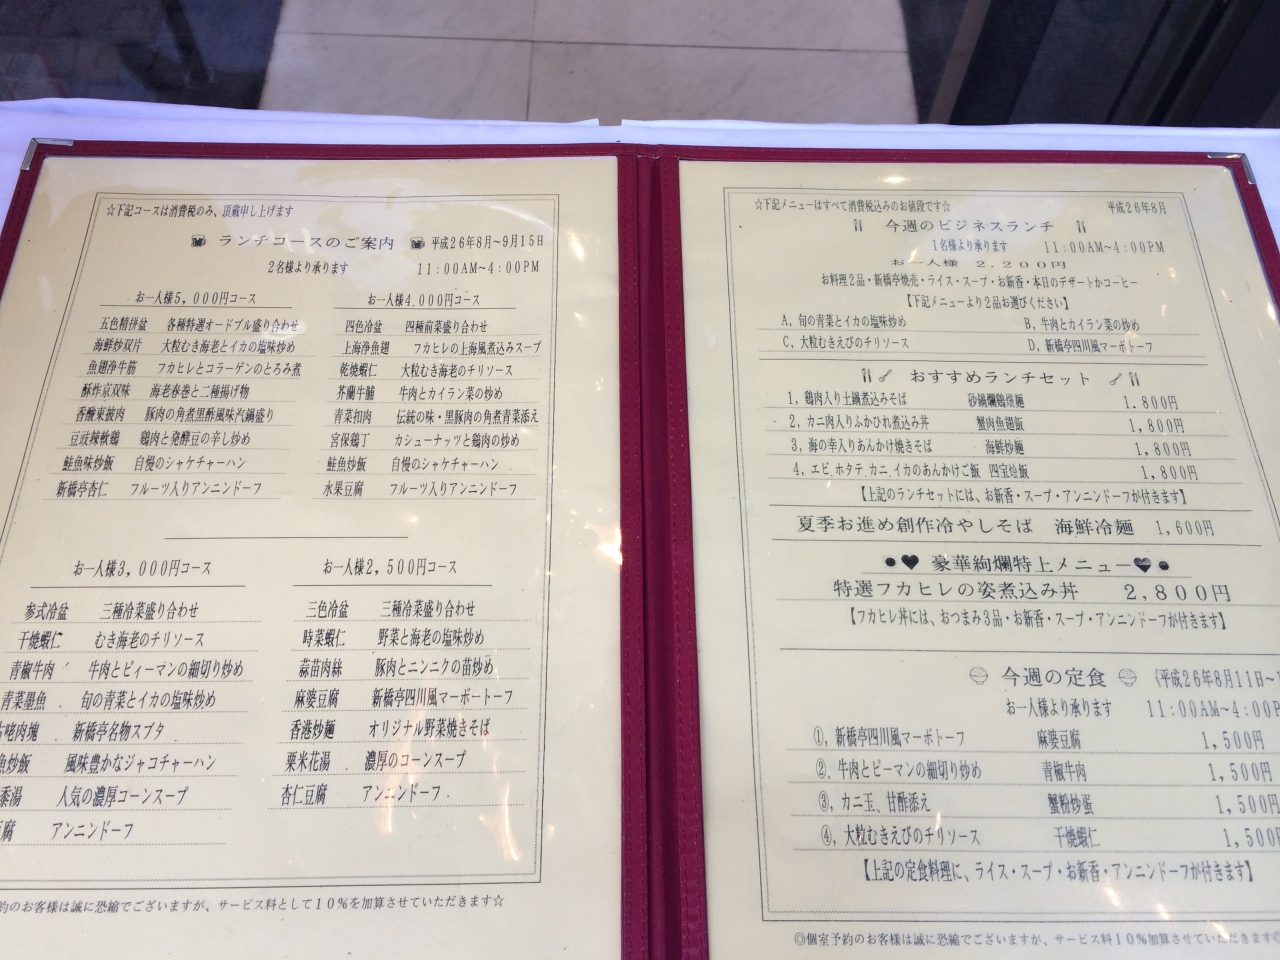 ☆下記コースは消費税のみ、頂戴申し上げます
ランチコースのご案内 平成26年8月~9月15日
2名様より承ります 11:00AM~4:00PM
お一人様5,000円コース
五色精拼盆 各種特選オードブル盛り合わせ
海鮮炒双片 大粒むき海老とイカの塩味炒め
魚翅浄牛筋 フカヒレとコラーゲンのとろみ煮
酥炸京双味 海老春巻と二種揚げ物
香醸東披肉 豚肉の角煮黒酢風味汽鍋盛り
豆鼓辣 鶏肉と発酵豆の辛し炒め
鮭魚味炒飯 自慢のシャケチャーハン
新橋亭杏仁 フルーツ入りアンニンドーフ
お一人様4.000円コース
四色冷盆 四種前菜盛り合わせ
上海浄魚翅 フカヒレの上海風煮込みスープ
乾焼蝦仁 大粒むき海老のチリソース
芥蘭牛脯 牛肉とカイラン菜の炒め
青菜扣肉 伝統の味・黒豚肉の角煮青菜添え
宮保鶏丁 カシューナッツと鶏肉の炒め
鮭魚炒飯 自慢のシャケチャーハン
水果豆腐 フルーツ入りアンニンドーフ
お一人様3,000円コース
参式冷盆 三種冷菜盛り合わせ
干焼蝦仁 むき海老のチリソース
青椒牛肉 牛肉とピィーマンの細切り炒め
青菜墨魚 旬の青菜とイカの塩味炒め
咾肉塊 新橋亭名物スブタ
魚炒飯 風味豊かなジャコチャーハン
黍湯 人気の濃厚コーンスープ
腐 アンニンドーフ
お一人様2,500円コース
三色冷盆 三種冷菜盛り合わせ
時菜蝦仁 野菜と海老の塩味炒め
蒜苗肉絲 豚肉とニンニクの苗炒め
麻婆豆腐 新橋亭四川風マーボートーフ
香港炒麺 オリジナル野菜焼きそば
粟米花湯 濃厚のコーンスープ
杏仁豆腐 アンニンドーフ
約のお客様は誠に恐縮でございますが、サービス料として10%を加算させていただきます☆
☆下記メニューはすべて消費税込みのお値段です☆ 平成26年8月
今週のビジネスランチ
1名様より承ります 11:00AM~4:00PM
お一人様 2,200円
お料理2品・新橋亭焼売・ライス・スープ・お新香・本日のデザートかコーヒー
【下記メニューより2品お選びください】
A,旬の青菜とイカの塩味炒め B,牛肉とカイラン菜の炒め
C,大粒むきえびのチリソース D,新橋亭四川風マーボートーフ
おすすめランチセット
1,鶏肉入り土鍋煮込みそば 1.800円
2,カニ肉入りふかひれ煮込み丼 蟹肉魚翅飯 1,800円
3,海の幸入りあんかけ焼きそば 海鮮炒麺 1,800円
4,エビ、ホタテ、カニ、イカのあんかけご飯 四宝烩飯 1,800円
【上記のランチセットには、お新香・スープ・アンニンドーフが付きます】
夏季お進め創作冷やしそば 海鮮冷麺 1,600円
●♥ 豪華絢爛特上メニュー♥●
特選フカヒレの姿煮込み丼 2,800円
【フカヒレ丼には、おつまみ3品・お新香・スープ・アンニンドーフが付きます】
今週の定食 (平成26年8月11日~
お一人様より承ります 11:00AM~4:00P
①,新橋亭四川風マーボトーフ 麻婆豆腐 1,500円
②.牛肉とピーマンの細切り炒め 青椒牛肉 1,500円
③,カニ玉、甘酢添え 蟹粉炒蛋 1,500円
④,大粒むきえびのチリソース 干焼蝦仁 1,500
【上記の定食料理に、ライス・スープ・お新香・アンニンドーフが付きます】
◎個室予約のお客様は誠に恐縮でございますが、サービス料10%加算させていただきます◎